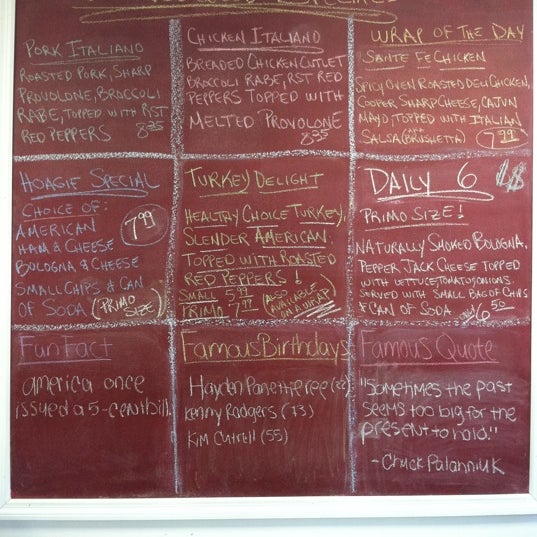 PORK ITALIANO
ROASTED PORK, SHARP
PROVOLONE, BROCCOLI
RABE, TOPPED WITH RST
RED PEPPERS 8.35
CHICKEN ITALIANO
BREADED CHICKEN CUTLET
BROCCOLI RABE, RST RED
PEPPERS TOPPED WITH
MELTED PROVOLONE
8.35
WRAP OF THE DAY
SANTE FE CHICKEN
SPICY OVEN ROASTED DELI CHICKEN,
COOPER SHARP CHEESE, CAJUN
MAYO, TOPPED WITH ITALIAN
SALSA (BRUSHETTA) 7.99
HOAGIE SPECIAL
CHOICE OF:
AMERICAN 7.99
HAM & CHEESE
BOLOGNA & CHEESE
SMALL CHIPS & CAN
OF SODA (PRIMO SIZE)
TURKEY DELIGHT
HEALTHY CHOICE TURKEY,
SLENDER AMERICAN
TOPPED WITH ROASTED
RED PEPPERS!
SMALL 5.99
PRIMO 7.99 (ALSO AVAILABLE ON A WRAP)
DAILY 6
PRIMO SIZE!
NATURALLY SMOKED BOLOGNA,
PEPPER JACK CHEESE TOPPED
WITH LETTUCE, TOMATO, ONIONS.
SERVED WITH SMALL BAG OF CHIPS
& CAN OF SODA only 6.50
Fun Fact
America once
issued a 5-cent bill.
Famous Birthdays
Hayden Panettieree (22)
Kenny Rodgers (73)
Kim Cattrell (55)
Famous Quote
"Sometimes the past
seems too big for the
present to hold."
- Chuck Palanniuk